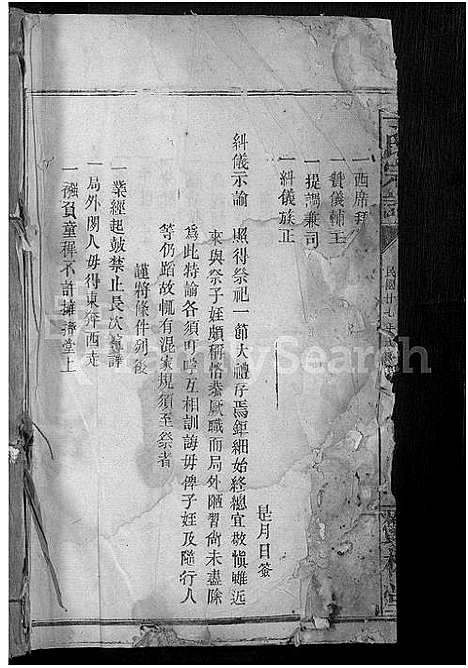 一西席拜
一贊儀輔主
一提調兼司
一糾儀族正
是月日簽
糾儀示諭 照得祭祀一節大禮存焉鉅細始終總宜敬愼雖近
來與祭子姪頗稱恪恭厥職而局外陋習尙未盡除
爲此特諭各須叮嚀互相訓誨毋俾子姪及隨行人
等仍蹈故轍有混家規須至祭者
謹將條件列後
一業經起鼓禁止長次喧譁
一局外閑人毋得東奔西走
一襁負童穉不許擁擠堂上
氏宗譜
民國廿七年
堂